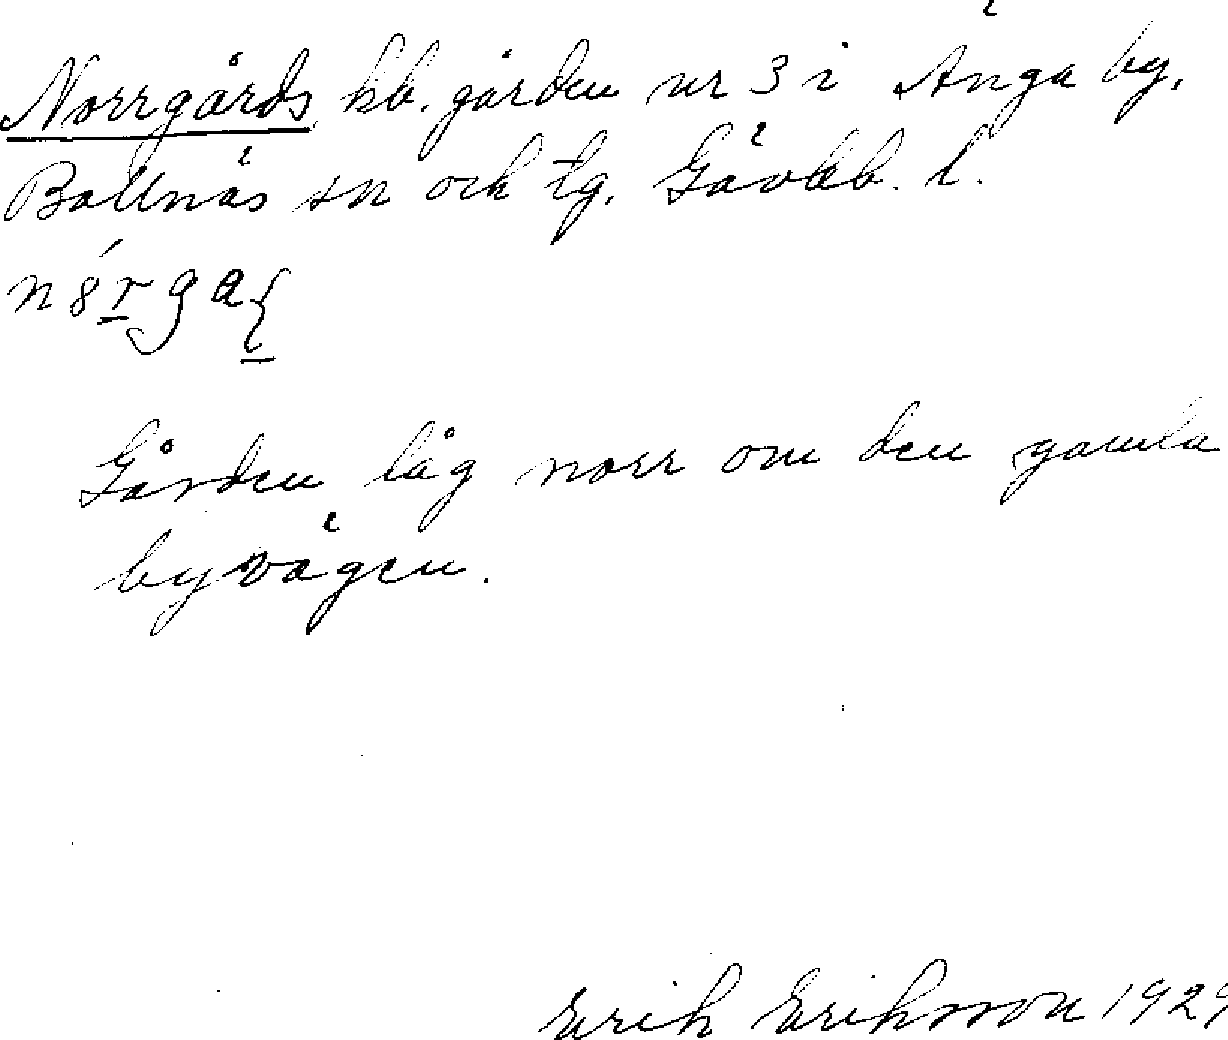 Norrgårds hb. gården nr 3 i Änga by,
Bollnäs sn och tg, Gävbb. l.
Gården låg norr om den gamla
byvägen.
Erik Eriksson 1929